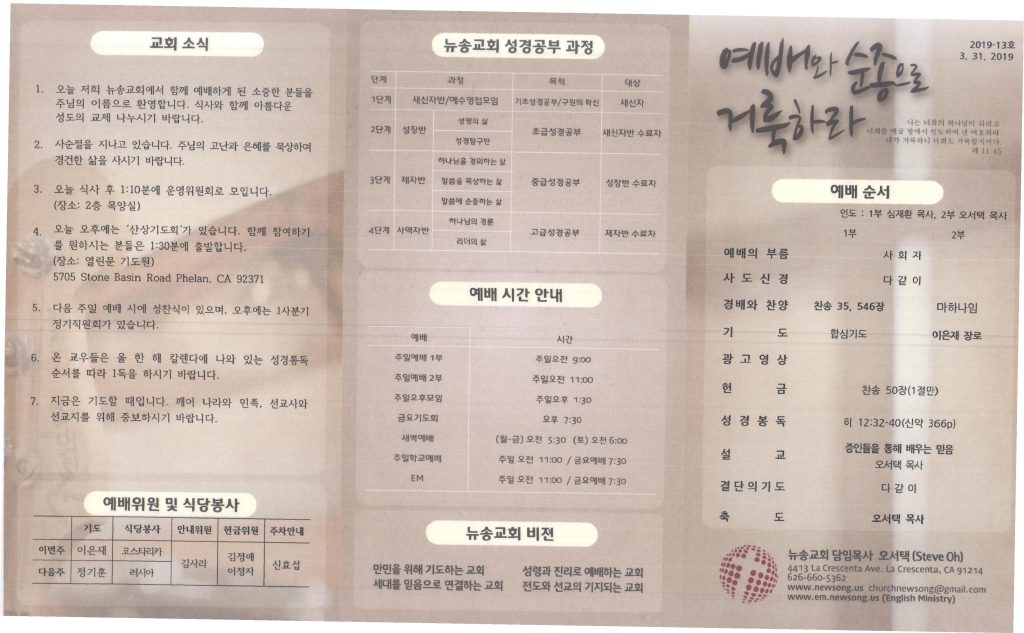 교회 소식
1. 오늘 저희 뉴송교회에서 함께 예배하게 된 소중한 분들을
주님의 이름으로 환영합니다. 식사와 함께 아름다운
성도의 교제 나누시기 바랍니다.
2. 사순절을 지나고 있습니다. 주님의 고난과 은혜를 묵상하며
경건한 삶을 사시기 바랍니다.
3. 오늘 식사 후 1:10분에 운영위원회로 모입니다.
(장소: 2층 목양실)
4. 오늘 오후에는 '산상기도회'가 있습니다. 함께 참여하기
를 원하시는 분들은 1:30분에 출발합니다.
(장소: 열린문 기도원)
5705 Stone Basin Road Phelan, CA 92371
5. 다음 주일 예배 시에 성찬식이 있으며, 오후에는 1사분기
정기직원회가 있습니다.
6. 온 교우들은 올 한 해 칼렌다에 나와 있는 성경통독
순서를 따라 1독을 하시기 바랍니다.
7. 지금은 기도할 때입니다. 깨어 나라와 민족, 선교사와
선교지를 위해 중보하시기 바랍니다.
예배위원 및 식당봉사
기도 식당봉사 안내위원 헌금위원 주차안내
이번주 이은재 코스타리카 김사라 김정애 이정자 신효섭
다음주 정기훈 러시아
뉴송교회 성경공부 과정
단계 과정 목적 대상
1단계 새신자반/예수영접모임 기초성경공부/구원의 확신 새신자
2단계 성장반 생명의 삶 초급성경공부 새신자반 수료자
성경탐구반
3단계 제자반 하나님을 경외하는 삶 중급성경공부 성장반 수료자
말씀을 묵상하는 삶
말씀에 순종하는 삶
4단계 사역자반 하나님의 경륜 고급성경공부 제자반 수료자
리더의 삶
예배 시간 안내
예배 시간
주일예배 1부 주일오전 9:00
주일예배 2부 주일오전 11:00
주일오후모임 주일오후 1:30
금요기도회 오후 7:30
새벽예배 (월-금) 오전 5:30 (토) 오전 6:00
주일학교예배 주일 오전 11:00 / 금요예배 7:30
EM 주일 오전 11:00 / 금요예배 7:30
뉴송교회 비전
만민을 위해 기도하는 교회 성령과 진리로 예배하는 교회
세대를 믿음으로 연결하는 교회 전도와 선교의 기지되는 교회
2019-13호
3. 31. 2019
예배와 순종으로
거룩하라
나는 너희의 하나님이 되려고
너희를 애굽 땅에서 인도하여 낸 여호와라
내가 거룩하니 너희도 거룩할지어다.
레 11:45
예배 순서
인도 : 1부 심재환 목사, 2부 오서택 목사
1부 2부
예배의 부름 사 회 자
사 도 신 경 다 같 이
경배와 찬양 찬송 35, 546장 마하나임
기 도 합심기도 이은재 장로
광 고 영 상
헌 금 찬송 50장(1절만)
성 경 봉 독 히 12:32-40(신약 366p)
설 교 증인들을 통해 배우는 믿음
오서택 목사
결단의기도 다 같 이
축 도 오서택 목사
뉴송교회 담임목사 오서택 (Steve Oh)
4413 La Crescenta Ave. La Crescenta, CA 91214
626-660-5362
www.newsong.us churchnewsong@gmail.com
www.em.newsong.us (English Ministry)